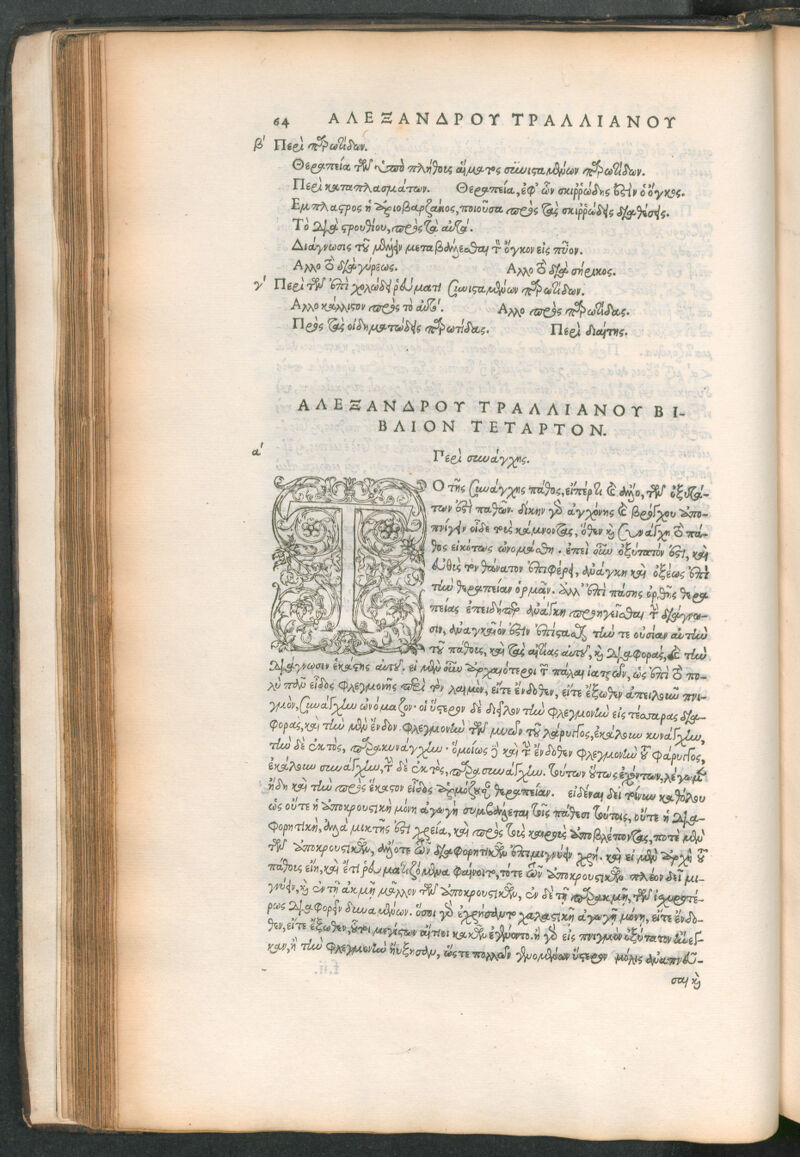 64 ΑΛΕΞΑΝΔΡΟΥ ΤΡΑΛΛΙΑΝΟΥ
β΄ Περὶ παρωτίδων.
Θεραπεία τῶν ὑπὸ πλήθους αἵματος συνισταμένων παρωτίδων.
Περὶ καταπλασμάτων. Θεραπεία, ἐφ᾽ ὧν σκιῤῥώδης ἐστὶν ὁ ὄγκος.
Εμπλαστρος ἡ ἀριοβαρζάνιος, ποιοῦσα πρὸς τὰς σκιῤῥώδεις διαθέσεις.
Τὸ διὰ στρουθίου, πρὸς τὰ αὐτά.
Διάγνωσις τοῦ μέλλειν μεταβάλλεσθαι τὸν ὄγκον εἰς πῦον.
Αλλο τὸ διὰ γύρεως. Αλλο τὸ διὰ σήρικος.
γ΄ Περὶ τῶν ἐπὶ χολώδει ῥεύματι συνισταμένων παρωτίδων.
Αλλο κάλλιστον πρὸς τὸ αὐτό. Αλλο πρὸς παρωτίδας.
Πρὸς τὰς οἰδηματώδεις παρωτίδας. Περὶ διαίτης.
ΑΛΕΞΑΝΔΡΟΥ ΤΡΑΛΛΙΑΝΟΥ ΒΙ-
ΒΛΙΟΝ ΤΕΤΑΡΤΟΝ.
α΄ Περὶ συνάγχης.
ΤΟ τῆς συνάγχης πάθος, εἴπερ τι καὶ ἄλλο, τῶν ὀξυτά-
των ἐστὶ παθῶν. δίκην γὰρ ἀγχόνης καὶ βρόχου ἀπο-
πνίγειν οἶδε τοὺς κάμνοντας, ὅθεν καὶ συνάγχη τὸ πά-
θος εἰκότως ὠνομάσθη. ἐπεὶ οὖν ὀξύτατόν ἐστι, καὶ
εὐθὺς τὸν θάνατον ἐπιφέρει, ἀνάγκη καὶ ὀξέως ἐπὶ
τὴν θεραπείαν ὁρμᾶν. ἀλλ᾽ ἐπὶ πάσης ὀρθῆς θερα
πείας ἐπειδήπερ ἀνάγκη προηγεῖσθαι τὴν διάγνω-
σιν, ἀναγκαῖόν ἐστιν ἐπίστασθαι τήν τε οὐσίαν αὐτὴν
τοῦ πάθους, καὶ τὰς αἰτίας αὐτοῦ, καὶ διαφορὰς, καὶ τὴν
διάγνωσιν ἑκάστης αὐτοῦ. οἱ μὲν οὖν ἀρχαιότεροι τῶν πάλαι ἰατρῶν, ὡς ἐπὶ τὸ πο-
λὺ πᾶν εἶδος φλεγμονῆς περὶ τὸν λαιμὸν, εἴτε ἔνδοθεν, εἴτε ἔξωθεν ἀπειλοῦν πνι-
γμὸν, συνάγχην ὠνόμαζον. οἱ ὕστερον δὲ διεῖλον τὴν φλεγμονὴν εἰς τέσσαρας δια-
φορὰς, καὶ τὴν μὲν ἔνδον φλεγμονὴν τῶν μυῶν τοῦ λάρυγγος, ἐκάλεσαν κυνάγχην,
τὴν δὲ ἐκτὸς, παρακυνάγχην. ὁμοίως δὲ καὶ τὴν ἔνδοθεν φλεγμονὴν τοῦ φάρυγγος,
ἐκάλεσαν συνάγχην, τὴν δὲ ἐκτὸς, παρασυνάγχην. τούτων οὕτως ἐχόντων, λέγωμεν
ἤδη καὶ τὴν πρὸς ἕκαστον εἶδος ἁρμόζουσαν θεραπείαν. εἰδέναι δεῖ τοίνυν καθόλου
ὡς οὔτε ἡ ἀποκρουστικὴ μόνη ἀγωγὴ συμβάλλεται τοῖς πάθεσι τούτοις, οὔτε ἡ δια-
φορητικὴ, ἀλλὰ μικτῆς ἐστι χρεία, καὶ πρὸς τοὺς καιροὺς ἀποβλέποντας, ποτὲ μὲν
τῶν ἀποκρουστικῶν, ἄλλοτε τῶν διαφορητικῶν ἐπιμιγνύειν χρή. καὶ εἰ μὲν ἀρχὴ τοῦ
πάθους εἴη, καὶ ἔτι ῥευματιζόμενα φαίνοιτο, τότε τῶν ἀποκρουστικῶν πλέον δεῖ μι-
γνύειν, καὶ ἐν τῇ ἀκμῇ μᾶλλον τῶν ἀποκρουστικῶν, ἐν δὲ τῇ παρακμῇ, τῶν ἰσχυροτέ-
ρως διαφορεῖν δυναμένων. ὅσοι γὰρ ἐχρήσαντο χαλαστικῇ ἀγωγῇ μόνῃ, εἴτε ἔνδο-
θεν, εἴτε ἔξωθεν, οὗτοι μεγίστων αἴτιοι κακῶν ἐγένοντο. ἢ γὰρ εἰς πνιγμὸν ὀξύτατον ἤνεγ-
καν, ἢ τὴν φλεγμονὴν ηὔξησαν, ὥστε πολλῶν γενομένων ὕστερον μόλις ἀναπνεῦ-
σαι καὶ